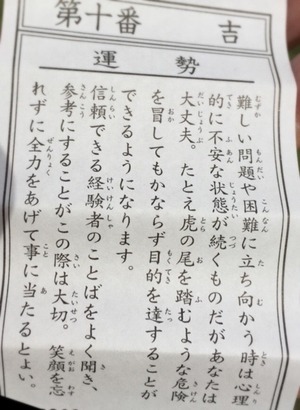 第十番 吉
運勢
難しい問題や困難に立ち向かう時は心理
的に不安な状態が続くものだがあなたは
大丈夫。たとえ虎の尾を踏むような危険
を冒してもかならず目的を達することが
できるようになります。
信頼できる経験者のことばをよく聞き、
参考にすることがこの際は大切。笑顔を忘
れずに全力をあげて事に当たるとよい。